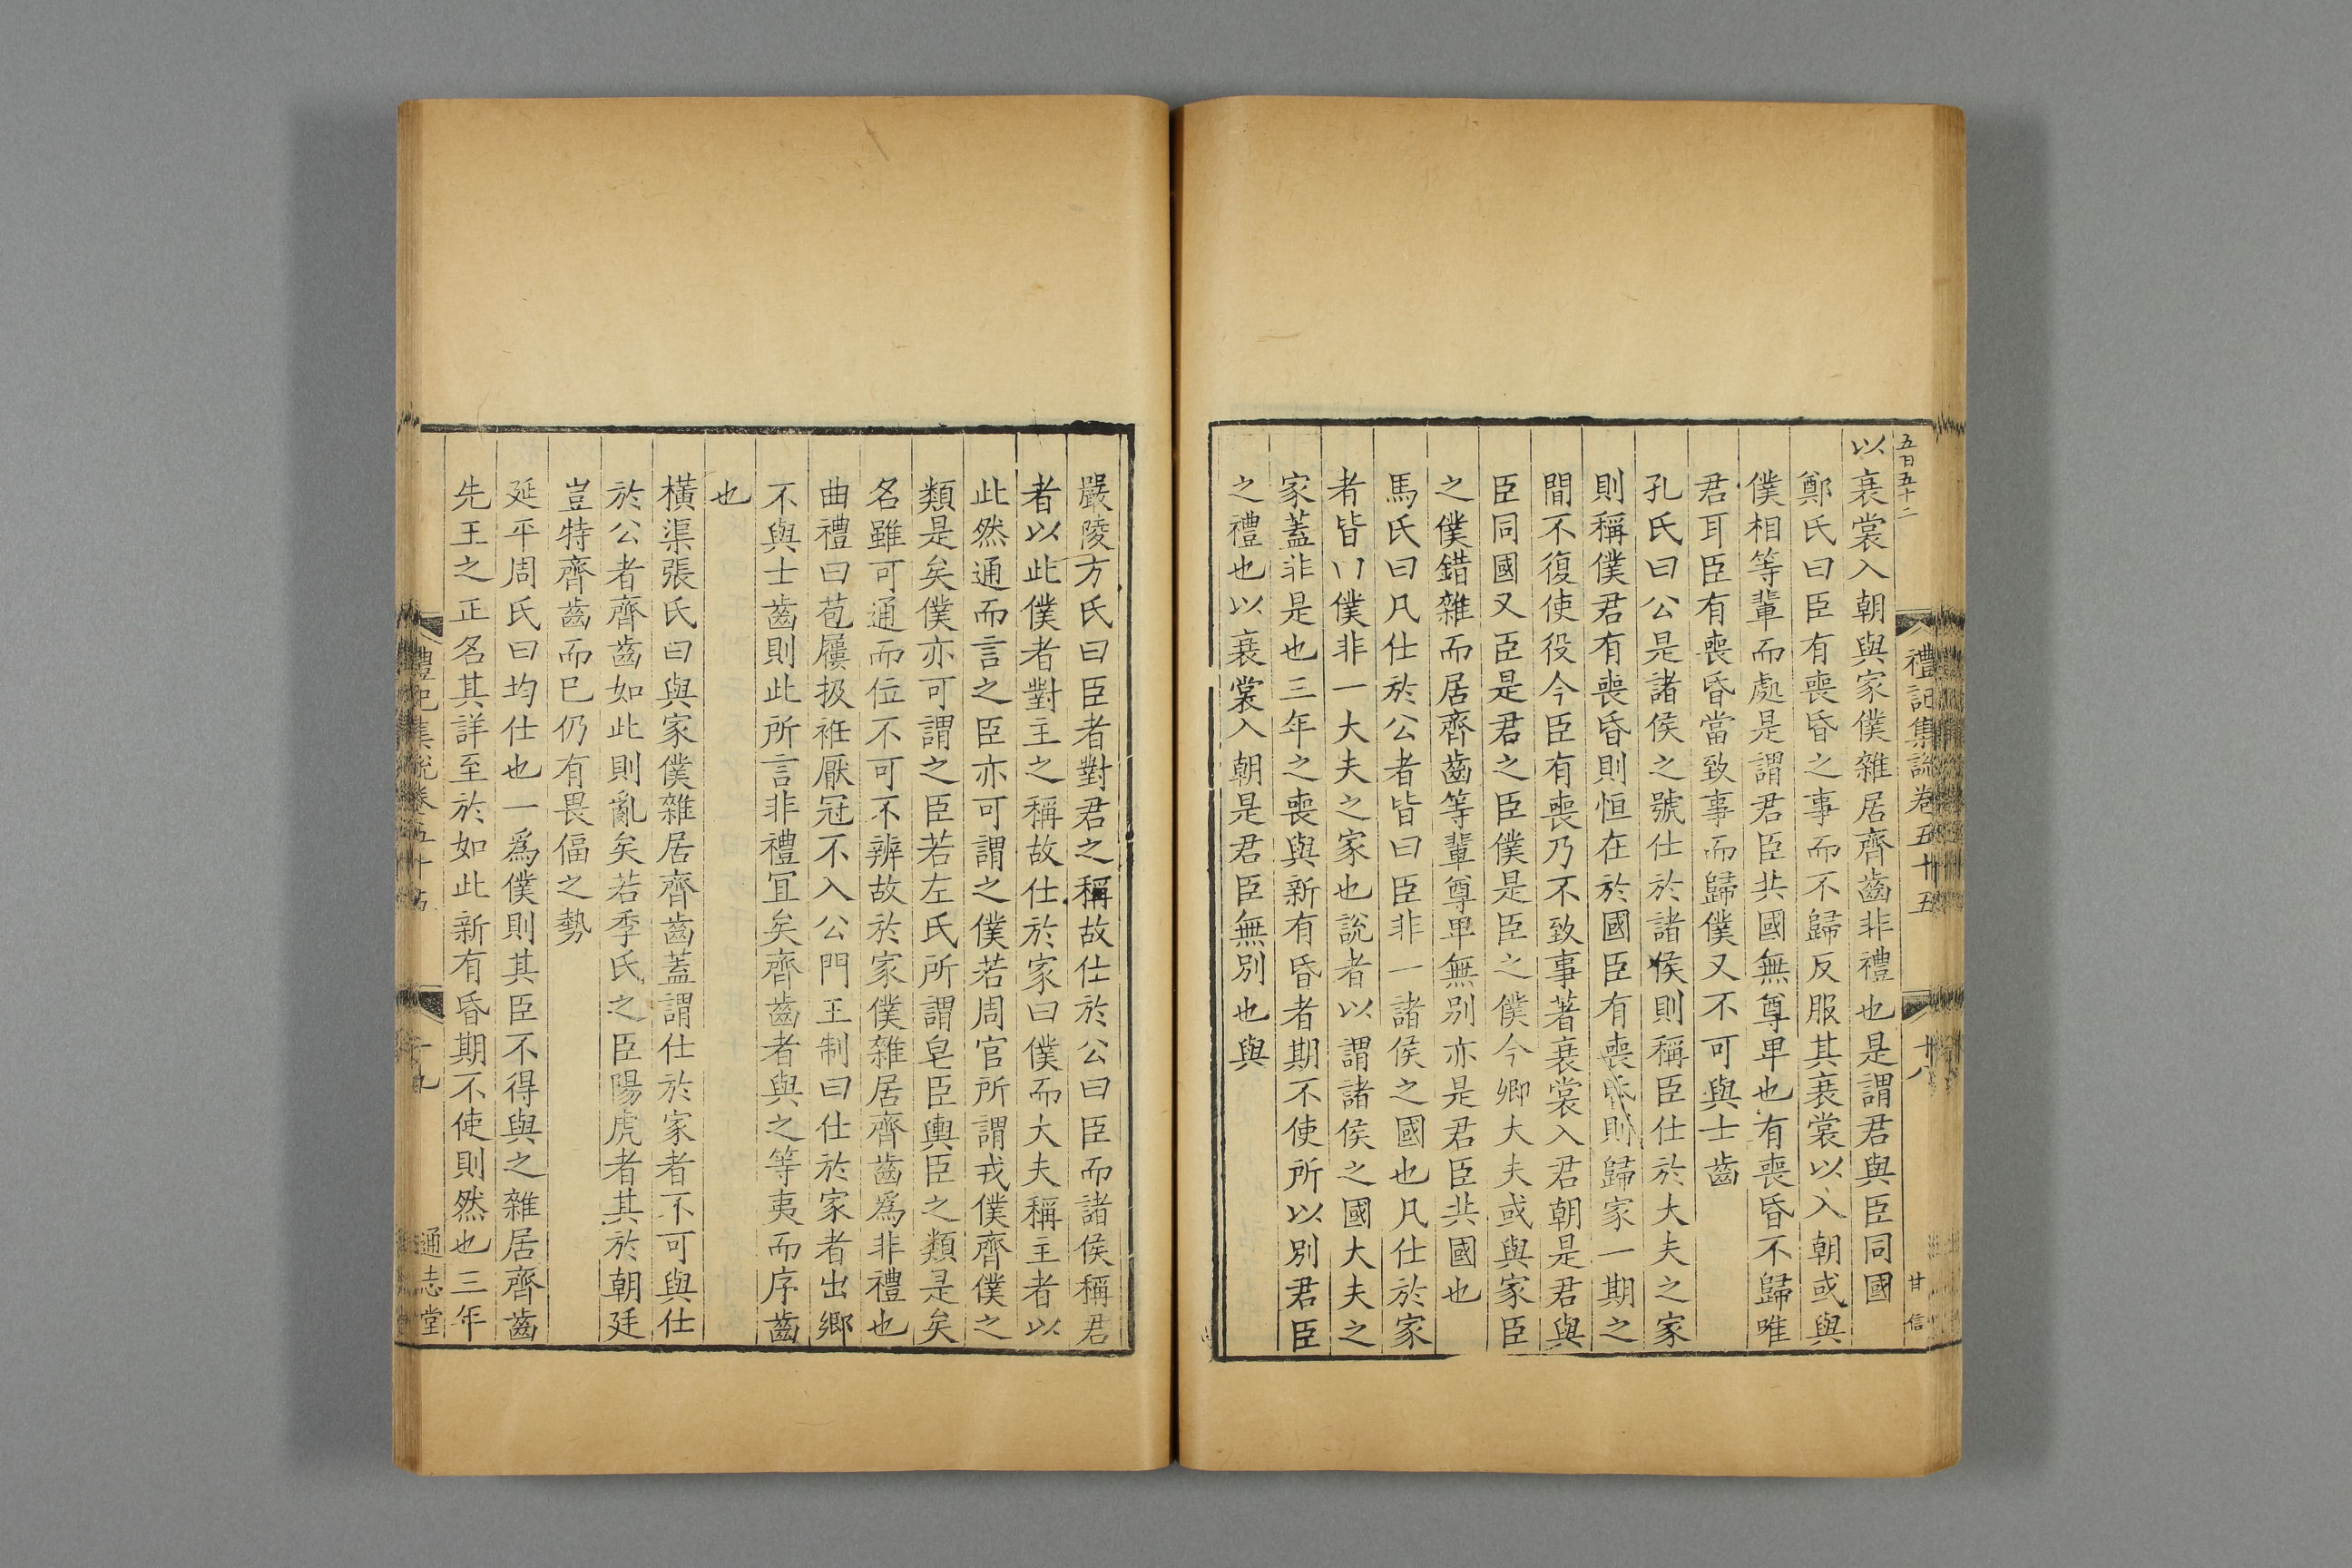 五百五十二
禮記集說卷五十五
十八
甘信
以衰裳入朝與家僕雜居齊齒非禮也是謂君與臣同國
鄭氏曰臣有喪昏之事而不歸反服其衰裳以入朝或與
僕相等輩而處是謂君臣共國無尊卑也有喪昏不歸唯
君耳臣有喪昏當致事而歸僕又不可與士齒
孔氏曰公是諸侯之號仕於諸侯則稱臣仕於大夫之家
則稱僕君有喪昏則恒在於國臣有喪昏則歸家一期之
間不復使役今臣有喪乃不致事著衰裳入君朝是君與
臣同國又臣是君之臣僕是臣之僕今卿大夫或與家臣
之僕錯雜而居齊齒等輩尊卑無別亦是君臣共國也
馬氏曰凡仕於公者皆曰臣非一諸侯之國也凡仕於家
者皆僕非一大夫之家也說者以謂諸侯之國大夫之
家蓋非是也三年之喪與新有昏者期不使所以別君臣
之禮也以衰裳入朝是君臣無別也與
嚴陵方氏曰臣者對君之稱故仕於公曰臣而諸侯稱君
者以此僕者對主之稱故仕於家曰僕而大夫稱主者以
此然通而言之臣亦可謂之僕若周官所謂戎僕齊僕之
類是矣僕亦可謂之臣若左氏所謂皂臣輿臣之類是矣
名雖可通而位不可不辨故於家僕雜居齊齒為非禮也
曲禮曰苞屨扱衽厭冠不入公門王制曰仕於家者出鄉
不與士齒則此所言非禮冝矣齊齒者與之等夷而序齒
也
橫渠張氏曰與家僕雜居齊齒蓋謂仕於家者不可與仕
於公者齊齒如此則亂矣若季氏之臣陽虎者其於朝廷
豈特齊齒而已仍有畏偪之勢
延平周氏曰均仕也一為僕則其臣不得與之雜居齊齒
先王之正名其詳至於如此新有昏期不使則然也三年
禮記集說卷五十五
十九
通志堂